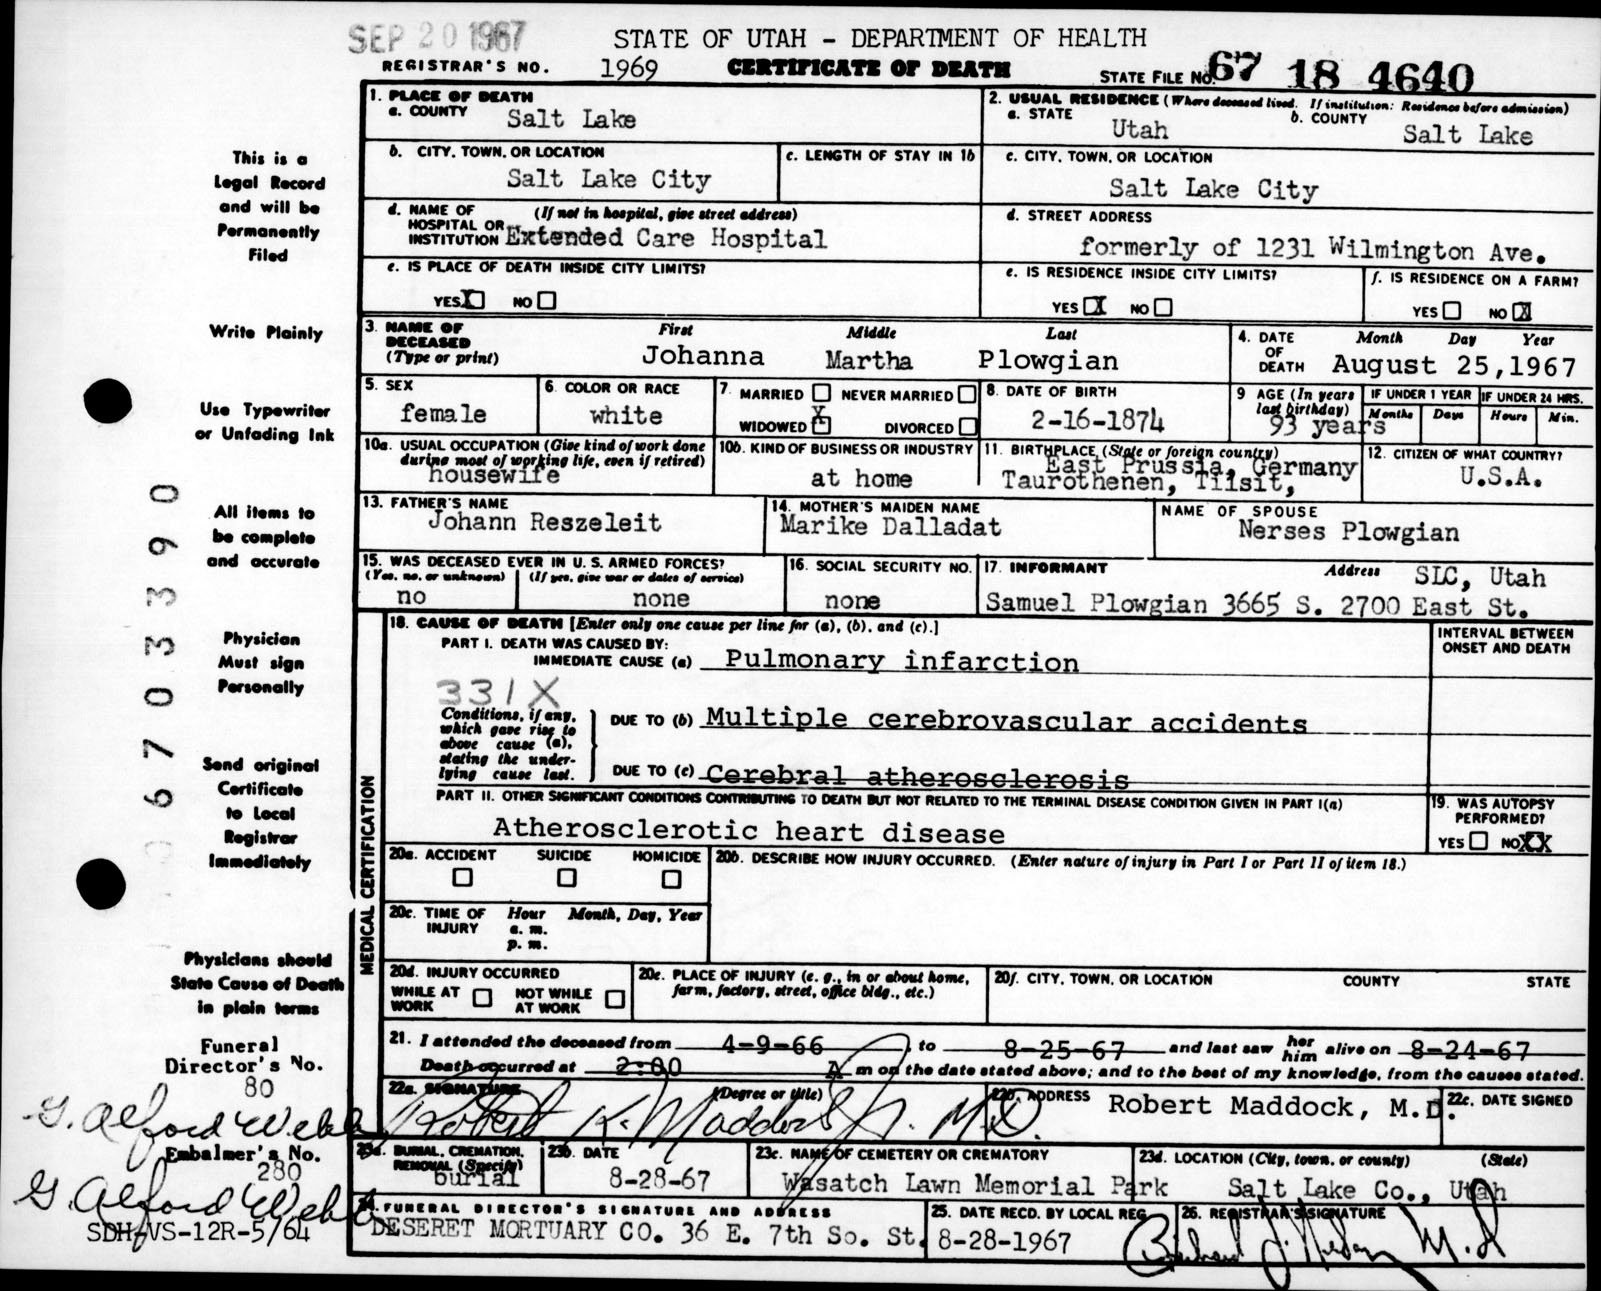 SEP 20 1967
STATE OF UTAH - DEPARTMENT OF HEALTH
REGISTRAR'S NO. 1969 CERTIFICATE OF DEATH STATE FILE NO. 67 18 4640
This is a
Legal Record
and will be
Permanently
Filed
Write Plainly
Use Typewriter
or Unfading Ink
All items to
be complete
and accurate
Physician
Must sign
Personally
Send original
Certificate
to Local
Registrar
Immediately
Physicians should
State Cause of Death
in plain terms
Funeral
Director's No.
80
G. Alford Webb
Embalmer's No.
280
G Alford Webb
SDH-VS-12R-5/64
06703390
1. PLACE OF DEATH
a. COUNTY Salt Lake
2. USUAL RESIDENCE (Where deceased lived. If institution: Residence before admission)
a. STATE Utah b. COUNTY Salt Lake
b. CITY, TOWN, OR LOCATION Salt Lake City
c. LENGTH OF STAY IN 1b
c. CITY, TOWN, OR LOCATION Salt Lake City
d. NAME OF HOSPITAL OR INSTITUTION (If not in hospital, give street address) Extended Care Hospital
d. STREET ADDRESS formerly of 1231 Wilmington Ave.
e. IS PLACE OF DEATH INSIDE CITY LIMITS?
YES X NO
e. IS RESIDENCE INSIDE CITY LIMITS?
YES X NO
f. IS RESIDENCE ON A FARM?
YES NO X
3. NAME OF DECEASED (Type or print) First Middle Last
Johanna Martha Plowgian
4. DATE OF DEATH Month Day Year
August 25, 1967
5. SEX female
6. COLOR OR RACE white
7. MARRIED NEVER MARRIED
WIDOWED X DIVORCED
8. DATE OF BIRTH 2-16-1874
9 AGE (In years last birthday) 93 years
IF UNDER 1 YEAR Months Days
IF UNDER 24 HRS. Hours Min.
10a. USUAL OCCUPATION (Give kind of work done during most of working life, even if retired) housewife
10b. KIND OF BUSINESS OR INDUSTRY at home
11. BIRTHPLACE (State or foreign country)
East Prussia, Germany
Taurothenen, Tilsit,
12. CITIZEN OF WHAT COUNTRY? U.S.A.
13. FATHER'S NAME Johann Reszeleit
14. MOTHER'S MAIDEN NAME Marike Dalladat
NAME OF SPOUSE Nerses Plowgian
15. WAS DECEASED EVER IN U. S. ARMED FORCES?
(Yes, no, or unknown) (If yes, give war or dates of service)
no none
16. SOCIAL SECURITY NO. none
17. INFORMANT Address SLC, Utah
Samuel Plowgian 3665 S. 2700 East St.
MEDICAL CERTIFICATION
18. CAUSE OF DEATH [Enter only one cause per line for (a), (b), and (c).]
PART I. DEATH WAS CAUSED BY:
IMMEDIATE CAUSE (a) Pulmonary infarction
INTERVAL BETWEEN ONSET AND DEATH
331X
Conditions, if any, which gave rise to above cause (a), stating the underlying cause last.
DUE TO (b) Multiple cerebrovascular accidents
DUE TO (c) Cerebral atherosclerosis
PART II. OTHER SIGNIFICANT CONDITIONS CONTRIBUTING TO DEATH BUT NOT RELATED TO THE TERMINAL DISEASE CONDITION GIVEN IN PART I(a)
Atherosclerotic heart disease
19. WAS AUTOPSY PERFORMED?
YES NO XX
20a. ACCIDENT SUICIDE HOMICIDE
20b. DESCRIBE HOW INJURY OCCURRED. (Enter nature of injury in Part I or Part II of item 18.)
20c. TIME OF INJURY Hour Month, Day, Year
a. m.
p. m.
20d. INJURY OCCURRED
WHILE AT WORK NOT WHILE AT WORK
20e. PLACE OF INJURY (e. g., in or about home, farm, factory, street, office bldg., etc.)
20f. CITY, TOWN, OR LOCATION COUNTY STATE
21. I attended the deceased from 4-9-66, to 8-25-67 and last saw her him alive on 8-24-67
Death occurred at 2:00 A m on the date stated above; and to the best of my knowledge, from the causes stated.
22a. SIGNATURE (Degree or title)
Robert K. Maddock Jr. M.D.
22b. ADDRESS Robert Maddock, M.D.
22c. DATE SIGNED
23a. BURIAL, CREMATION, REMOVAL (Specify) burial
23b. DATE 8-28-67
23c. NAME OF CEMETERY OR CREMATORY Wasatch Lawn Memorial Park
23d. LOCATION (City, town, or county) (State)
Salt Lake Co., Utah
24. FUNERAL DIRECTOR'S SIGNATURE AND ADDRESS
DESERET MORTUARY CO. 36 E. 7th So. St.
25. DATE RECD. BY LOCAL REG. 8-28-1967
26. REGISTRAR'S SIGNATURE
M.D